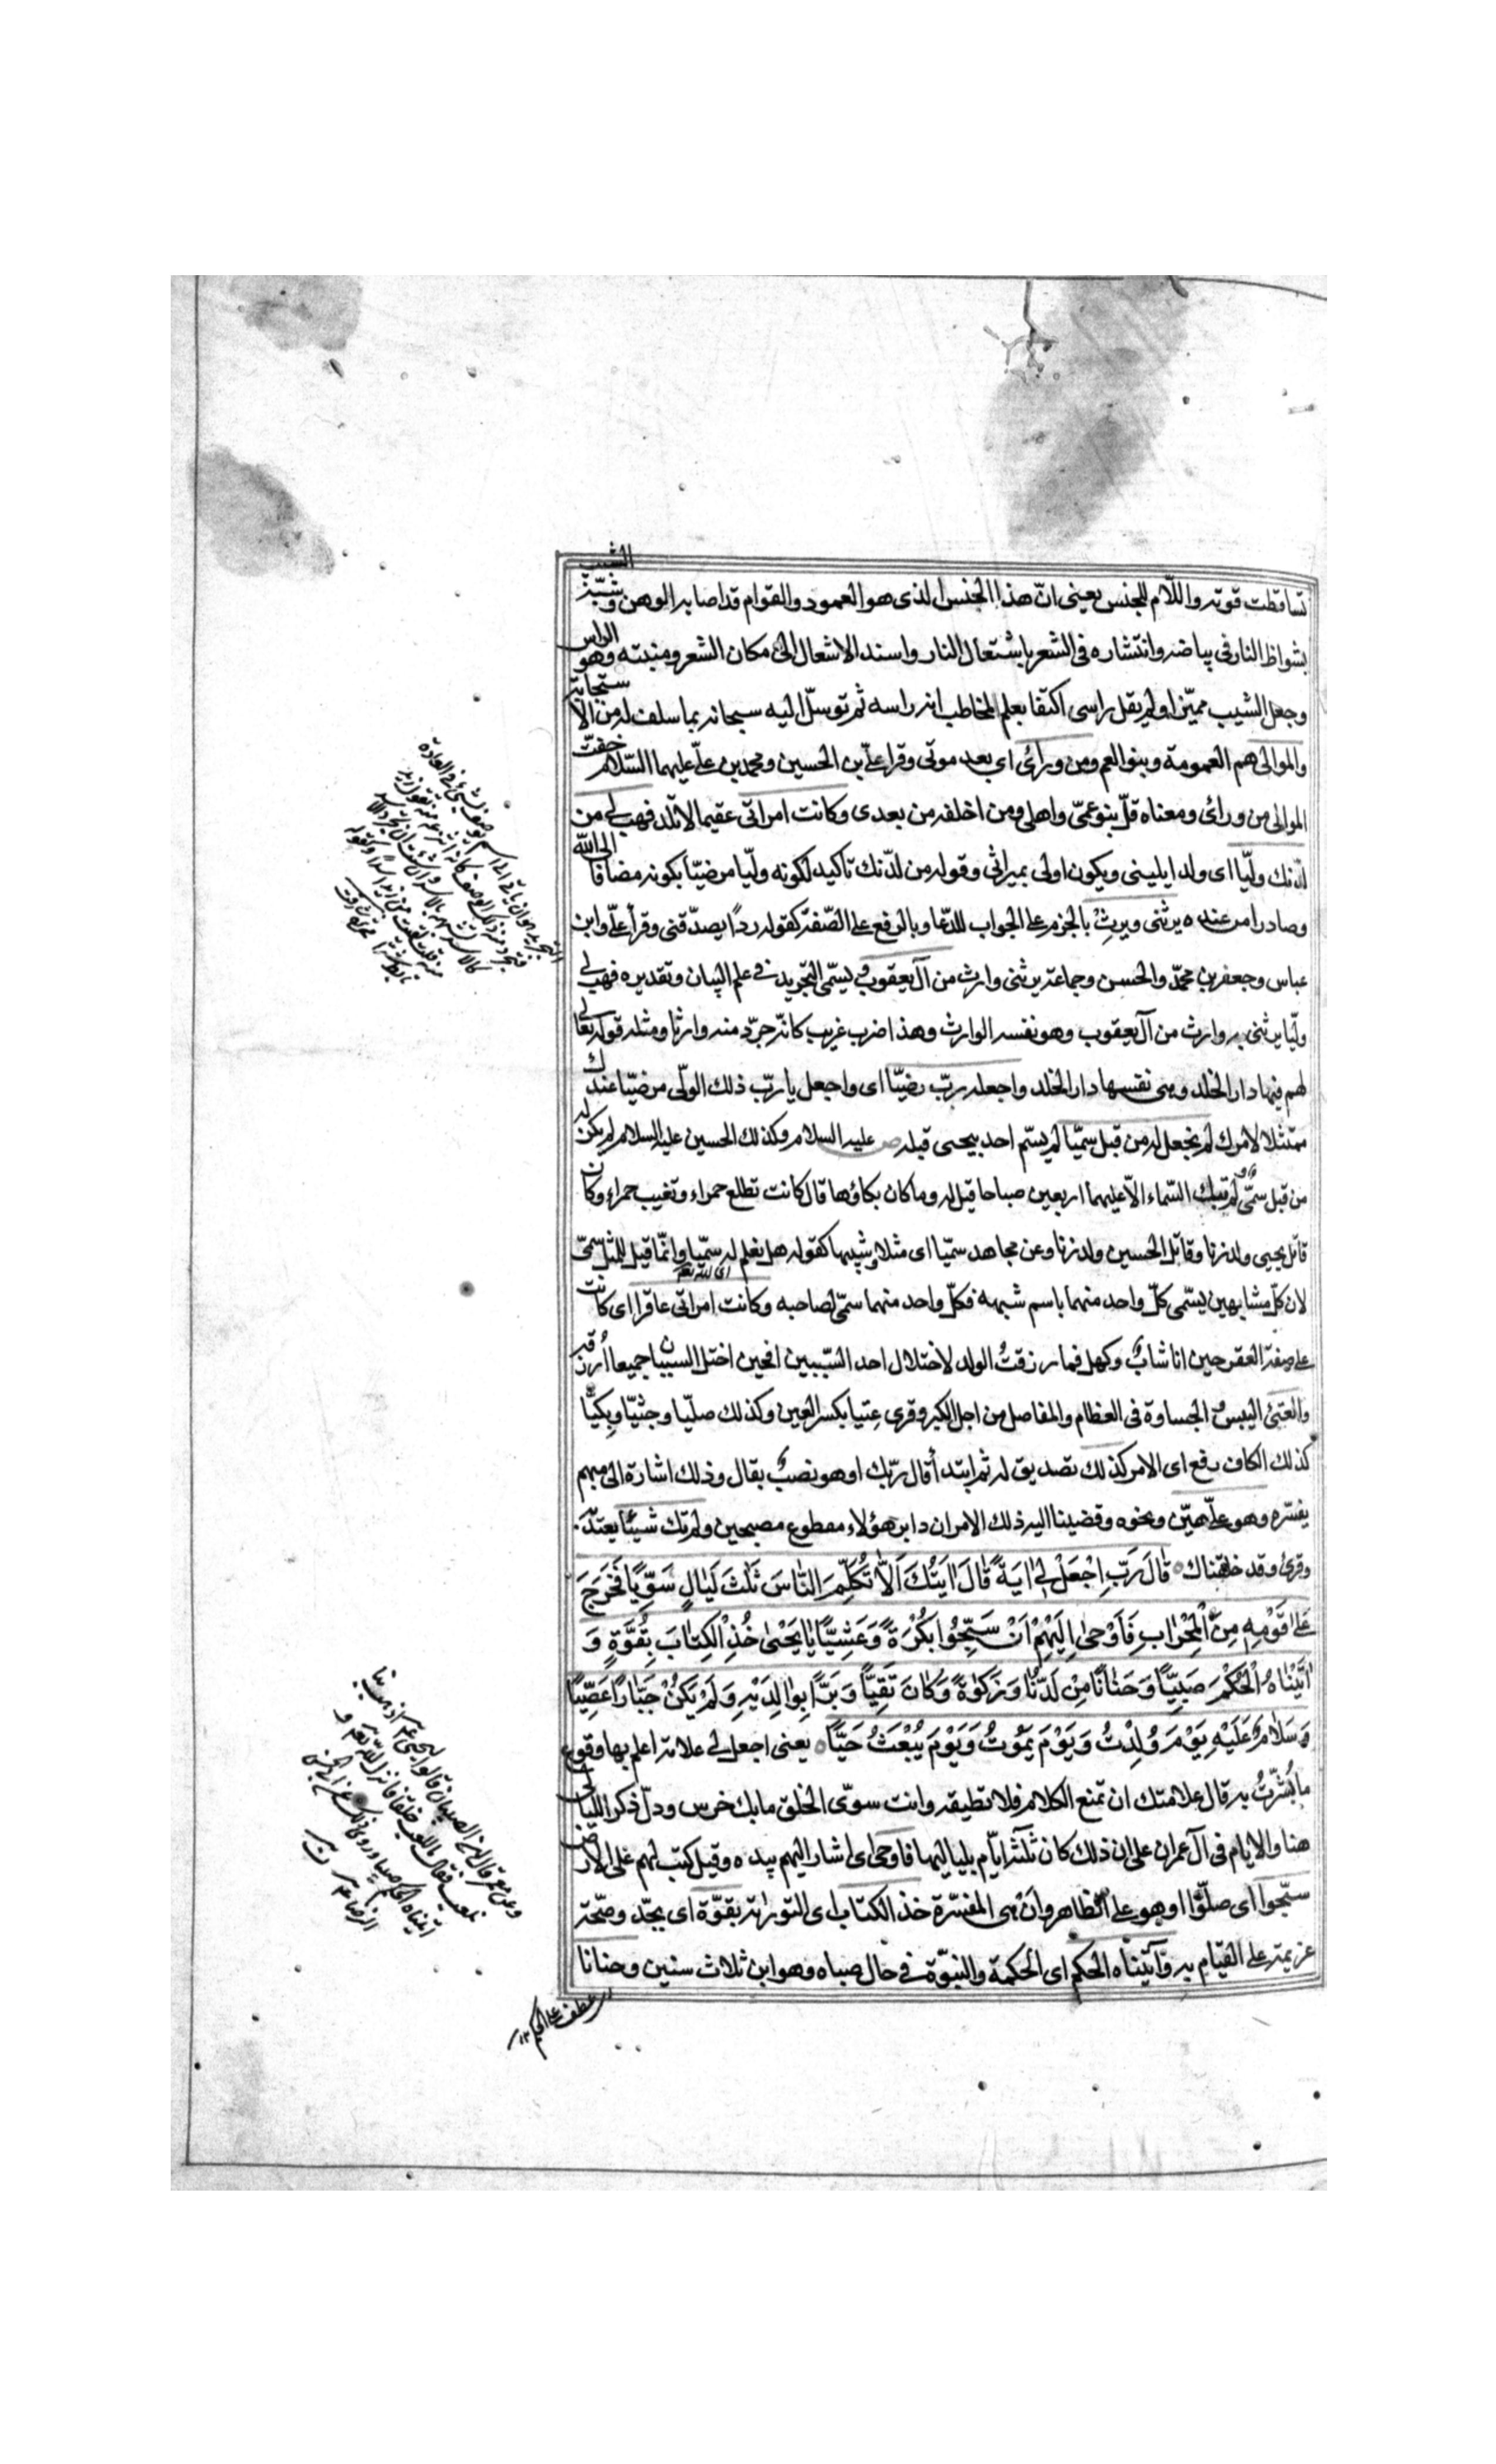 تساقطت قوته واللّام للجنس يعنى انّ هذا الجنس الذى هو العمود والقوام قد اصابه الوهن وشبّه الشيب
بشواظ النار فى بياضه وانتشاره فى الشعر باشتعال النار واسند الاشعال الى مكان الشعر ومنبته وهو الراس
وجعل الشيب مميّزا ولم يقل راسى اكتفا بعلم المخاطب انه راسه ثم توسّل اليه سبحانه بما سلف له من الاستجابة
والموالى هم العمومة وبنو العم ومن ورائى اى بعد موتى وقرا علىّ بن الحسين ومحمد بن علىّ عليهما السّلام خفّت
الموالى من ورائى ومعناه قلّ بنو عمّى واهلى ومن اخلفه من بعدى وكانت امراتى عقيما لا تلد فهب لى من
لدنك وليّا اى ولدا يلينى ويكون اولى بميراثى وقوله من لدنك تاكيد لكونه وليّا مرضيّا بكونه مضافا الى الله
وصادرا من عنده يرثنى ويرثُ بالجزم على الجواب للدّعا وبالرفع على الصّفة كقوله ردًا يصدّقنى وقرأ علىّ وابن
عباس وجعفر بن محمّد والحسن وجماعة يرثنى وارث من آل يعقوب يسمّى التجريد فى علم البيان وتقديره فهب لى
وليّا يرثنى به وارث من آل يعقوب وهو نفسه الوارث وهذا ضرب غريب كانّه جرّد منه وارثا ومثله قوله تعالى
لهم فيها دار الخلد وهى نفسها دار الخلد واجعله ربّ رضيّا اى واجعل يا ربّ ذلك الولّى مرضيّا عندك
ممتثلا لامرك لم نجعل له من قبل سميّا لم يسّم احد بيحيى قبله ص عليه السلام وكذلك الحسين عليه السلام لم يكن له
من قبل سمّى ولم تبك السّماء الّا عليهما اربعين صباحا قيل له وما كان بكاؤها قال كانت تطلع حمراء وتغيب حمراء وكان
قاتل يحيى ولد زنا وقاتل الحسين ولد زنا وعن مجاهد سميّا اى مثلا وشبيها كقوله هل تعلم له سميّا وانّما قيل للمثل سمّى
اى لله تعم
لان كلّ مشابهين يسّمى كلّ واحد منهما باسم شبيهه فكلّ واحد منهما سمّى لصاحبه وكانت امراتى عاقرا اى كانت
على صفة العقر حين انا شابٌ وكهل فما رزقتُ الولد لاختلال احد السّببين افحين اختل السببان جميعا أُرزقه
والعتىّ اليبس والجساوة فى العظام والمفاصل من اجل الكبر وقرى عِتيا بكسر العين وكذلك صليّا وجثيّا وبكيًّا
كذلك الكاف رفع اى الامر كذلك تصديق له ثم ابتدأ قال ربّك او هو نصبٌ بقال وذلك اشارة الى مبهم
يفسّره وهو علىّ هيّن ونحوه وقضينا اليه ذلك الامر ان دابر هؤلاء مقطوع مصبحين ولم تك شيئًا يعتدّ به
وقرئ وقد خلقناك قَالَ رَبِّ اجْعَلْ لِى آيَةً قَالَ آيَتُكَ اَلّاَ تُكَلِّمَ النَّاسَ ثَلٰثَ لَيَالٍ سَوِيًّا فَخَرَجَ
عَلٰى قَوْمِهِ مِنَ الْمِحْرَابِ فَاَوْحٰى اِلَيْهِمْ اَنْ سَبِّحُوا بُكْرَةً وَعَشِيًّا يَا يَحْيٰى خُذِ الْكِتَابَ بِقُوَّةٍ وَ
اٰتَيْنَاهُ الْحُكْمَ صَبِيًّا وَحَنَانًا مِنْ لَدُنَّا وَزَكٰوةً وَكَانَ تَقِيًّا وَبَرًّا بِوَالِدَيْهِ وَلَمْ يَكُنْ جَبَّارًا عَصِيًّا
وَسَلَامٌ عَلَيْهِ يَوْمَ وُلِدْتُ وَيَوْمَ يَمُوتُ وَيَوْمَ يُبْعَثُ حَيًّا يعنى اجعل لى علامة اعلم بها وقوع
ما بُشّرتُ به قال علامتك ان تمنع الكلام فلا تطيقه وانت سوّى الخلق ما بك خرس ودلّ ذكر الليالى
هنا والايام فى آل عمران على ان ذلك كان ثلثة ايّام بلياليها فاوحى اى اشار اليهم بيده وقيل كتب لهم على الارض
سبّحوا اى صلّوا او هو على الظاهر وان هى المفسّرة خذ الكتاب اى التورية بقوّة اى بجدّ وصحّة
عزيمة على القيام به وآتيناه الحكم اى الحكمة والنبوّة فى حال صباه وهو ابن ثلاث سنين وحنانا
عطف على الحكم ١٢